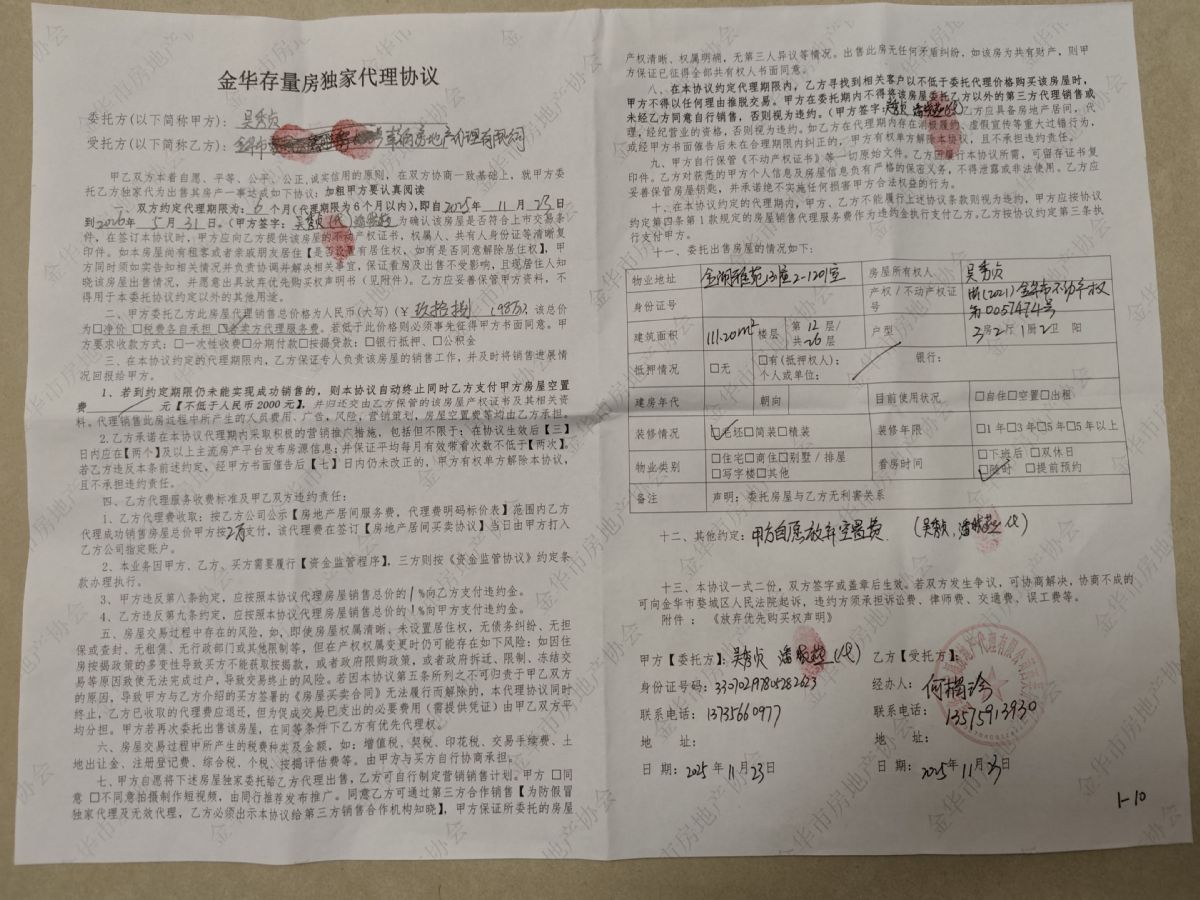 金华存量房独家代理协议
委托方(以下简称甲方):吴秀贞
受托方(以下简称乙方):金华市 房地产代理有限公司
甲乙双方本着自愿、平等、公平、公正、诚实信用的原则,在双方协商一致基础上,就甲方委
托乙方独家代为出售其房产一事达成如下协议:加粗甲方要认真阅读
一、双方约定代理期限为:6个月(代理期限为6个月以内),即自2025年11月23日
到2026年5月31日。(甲方签字:吴秀贞(代) 为确认该房屋是否符合上市交易条
件,在签订本协议时,甲方应向乙方提供该房屋的不动产权证书,权属人、共有人身份证等清晰复
印件。如本房屋尚有租客或者亲戚朋友居住【是否设置有居住权,如有是否同意解除居住权】,甲
方同时须如实告知相关情况并负责协调并解决相关事宜,保证看房及出售不受影响,且现居住人知
晓该房屋出售情况,并愿意出具放弃优先购买权声明书(见附件)。乙方应妥善保管甲方资料,不
得用于本委托协议约定以外的其他用途。
二、甲方委托乙方此房屋代理销售总价格为人民币(大写)(¥玖拾捌 (98万),该总价
为□净价 □税费各自承担 □含卖方代理服务费。若低于此价格则必须事先征得甲方书面同意。甲
方要求收款方式:□一次性收费□分期付款□按揭贷款:□银行抵押、□公积金
三、在本协议约定的代理期限内,乙方保证专人负责该房屋的销售工作,并及时将销售进展情
况回报给甲方。
1、若到约定期限仍未能实现成功销售的,则本协议自动终止同时乙方支付甲方房屋空置
费 / 元【不低于人民币2000元】,并归还交由乙方保管的该房屋产权证书及其相关资
料。代理销售此房过程中所产生的人员费用、广告,风险,营销策划,房屋空置费等均由乙方承担。
2.乙方承诺在本协议代理期内采取积极的营销推广措施,包括但不限于:在协议生效后【三】
日内应在【两个】及以上主流房产平台发布房源信息;并保证平均每月有效带看次数不低于【两次】。
若乙方违反本条前述约定,经甲方书面催告后【七】日内仍未改正的,甲方有权单方解除本协议,
且不承担违约责任。
四、乙方代理服务收费标准及甲乙双方违约责任:
1、乙方代理费收取:按乙方公司公示【房地产居间服务费,代理费明码标价表】范围内乙方
代理成功销售房屋总价甲方按2万支付,该代理费在签订【房地产居间买卖协议】当日由甲方打入
乙方公司指定账户。
2、本业务因甲方、乙方、买方需要履行【资金监管程序】,三方则按《资金监管协议》约定条
款办理执行。
3、甲方违反第八条约定,应按照本协议代理房屋销售总价的1%向乙方支付违约金。
4、乙方违反第九条约定,应按照本协议代理房屋销售总价的1%向甲方支付违约金。
五、房屋交易过程中存在的风险,如,即使房屋权属清晰、未设置居住权,无债务纠纷、无担
保或查封、无租赁、无行政部门或其他限制等,但在产权权属变更时仍可能存在如下风险:如因住
房按揭政策的多变性导致买方不能获取按揭款,或者政府限购政策,或者政府拆迁、限制、冻结交
易等原因致使无法完成过户,导致交易终止的风险。若因本协议第五条所列之不可归责于甲乙双方
的原因,导致甲方与乙方介绍的买方签署的《房屋买卖合同》无法履行而解除的,本代理协议同时
终止,乙方已收取的代理费应退还,但为促成交易已支出的必要费用(需提供凭证)由甲乙双方平
均分担。甲方若再次委托出售该房屋,在同等条件下乙方有优先代理权。
六、房屋交易过程中所产生的税费种类及金额,如:增值税、契税、印花税、交易手续费、土
地出让金、注册登记费、综合税、个税、按揭评估费等。由甲方与买方自行协商承担。
七、甲方自愿将下述房屋独家委托给乙方代理出售,乙方可自行制定营销销售计划。甲方 □同
意 □不同意拍摄制作短视频,由同行推荐发布推广。同意乙方可通过第三方合作销售【为防假冒
独家代理及无效代理,乙方必须出示本协议给第三方销售合作机构知晓】,甲方保证所委托的房屋
产权清晰、权属明确,无第三人异议等情况。出售此房无任何矛盾纠纷,如该房为共有财产,则甲
方保证已征得全部共有权人书面同意。
八、在本协议约定代理期限内,乙方寻找到相关客户以不低于委托代理价格购买该房屋时,
甲方不得以任何理由推脱交易。甲方在委托期内不得将该房屋委托乙方以外的第三方代理销售或
未经乙方同意自行销售,否则视为违约。(甲方签字: (代))乙方应具备房地产居间,代
理,经纪营业的资格,否则视为违约。如乙方在代理期内存在消极履约、虚假宣传等重大过错行为,
或经甲方书面催告后未在合理期限内纠正的,甲方有权单方解除本协议,且不承担违约责任。
九、甲方自行保管《不动产权证书》等一切原始文件。乙方因履行本协议所需,可留存证书复
印件。乙方对获悉的甲方个人信息及房屋信息负有严格的保密义务,不得泄露或非法使用。乙方应
妥善保管房屋钥匙,并承诺绝不实施任何损害甲方合法权益的行为。
十、在本协议约定的代理期内,甲方、乙方不能履行上述协议条款则视为违约,甲方应按协议
约定第四条第1款规定的房屋销售代理服务费作为违约金执行支付乙方。乙方按协议约定第三条执
行支付甲方。
十一、委托出售房屋的情况如下:
物业地址 金湖雅苑13幢2-1201室 房屋所有权人 吴秀贞
身份证号 产权/不动产权证号 浙(2021)金华市不动产权第0057474号
建筑面积 111.20m² 楼层 第12层/共26层 户型 3房2厅1厨2卫 阳
抵押情况 □无 □有(抵押权人): 银行:
个人或单位:
建房年代 朝向 目前使用状况 □自住□空置□出租
装修情况 □毛坯□简装□精装 装修年限 □1年□3年□5年□5年以上
物业类别 □住宅□商住□别墅/排屋 □写字楼□其他 看房时间 □下班后 □双休日 □随时 □提前预约
备注 声明:委托房屋与乙方无利害关系
十二、其他约定:甲方自愿放弃空置费. (吴秀贞, 代)
十三、本协议一式二份,双方签字或盖章后生效。若双方发生争议,可协商解决,协商不成的
可向金华市婺城区人民法院起诉,违约方须承担诉讼费、律师费、交通费、误工费等。
附件:《放弃优先购买权声明》
甲方【委托方】:吴秀贞 (代) 乙方【受托方】:
身份证号码:330702197805282623 经办人:何
联系电话:13735660977 联系电话:13575913930
地 址: 地 址:
日 期:2025年11月23日 日 期:2025年11月23日
1-10
金华市房地产协会